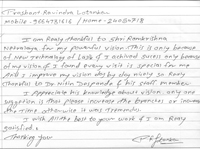 Prashant Ravindra Lotankar
Mobile - 9664731616 / Home - 24054718
I am Really thankful to Shri Ramkrishna
Netralaya for my powerful vision. This is only because
of New Technology of Lasik I achieved sucess only because
of my vision if I found every visit is special for me
And I improve my vision day by day nicely so Really
thankful to Dr Nitin Deshpande & his staff members.
I Appreciate his knowledge about vision only one
suggestion is that please increase the branches or increase
the time otherwise it was tremendous.
I wish All the best to your work & I am Really
satisfied.
Thanking you